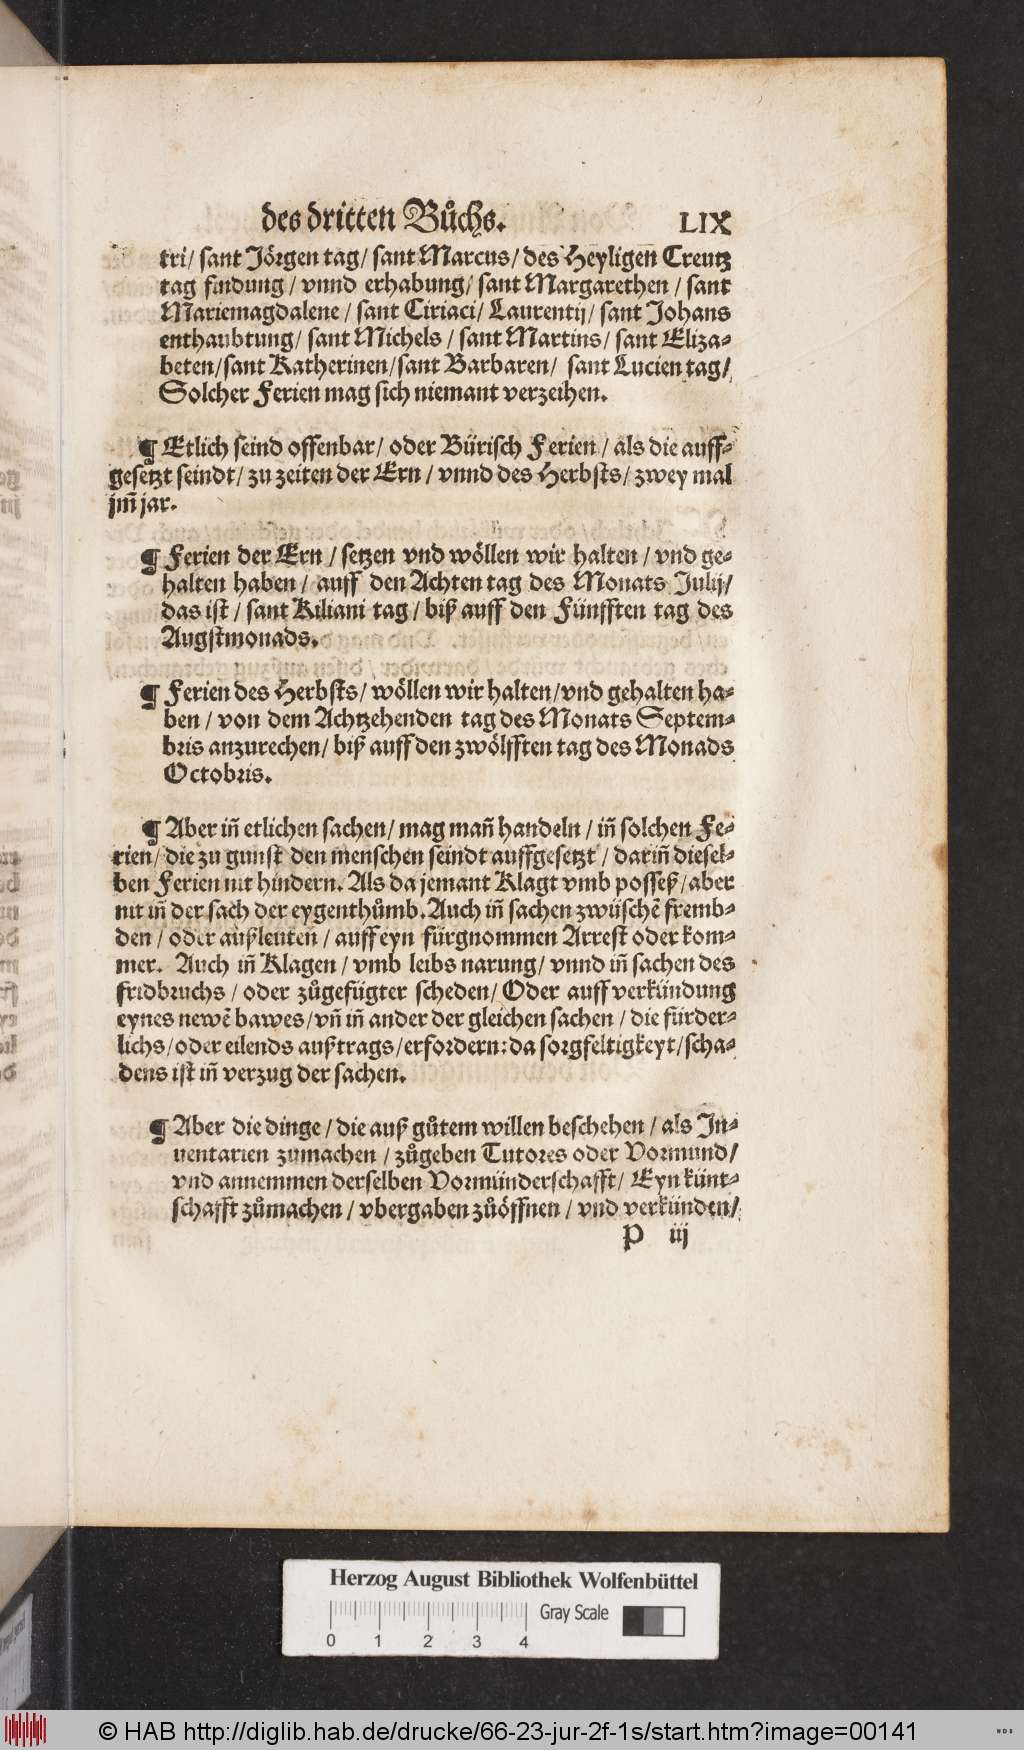 des dritten Bůchs. LIX
tri/ sant Jörgen tag/ sant Marcus/ des Heyligen Creutz
tag findung / vnnd erhabung/ sant Margarethen / sant
Mariemagdalene / sant Ciriaci/ Laurentij/ sant Johans
enthaubtung/ sant Michels / sant Martins/ sant Eliza-
beten/sant Katherinen/sant Barbaren/ sant Lucien tag/
Solcher Ferien mag sich niemant verzeihen.
¶ Etlich seind offenbar/ oder Bürisch Ferien / als die auff-
gesetzt seindt/ zu zeiten der Ern / vnnd des Herbsts/ zwey mal
jm̃ jar.
¶ Ferien der Ern / setzen vnd wöllen wir halten / vnd ge-
halten haben / auff den Achten tag des Monats Julij/
das ist / sant Kiliani tag / biß auff den Fünfften tag des
Augstmonads.
¶ Ferien des Herbsts/ wöllen wir halten/vnd gehalten ha-
ben / von dem Achtzehenden tag des Monats Septem-
bris anzurechen/ biß auff den zwölfften tag des Monads
Octobris.
¶ Aber iñ etlichen sachen/ mag mañ handeln / iñ solchen Fe-
rien/ die zu gunst den menschen seindt auffgesetzt / dariñ diesel-
ben Ferien nit hindern. Als da jemant Klagt vmb posseß/ aber
nit iñ der sach der eygenthůmb. Auch iñ sachen zwüschẽ fremb-
den / oder außleuten / auff eyn fürgnommen Arrest oder kom-
mer. Auch iñ Klagen / vmb leibs narung/ vnnd iñ sachen des
fridbruchs / oder zůgefügter scheden/ Oder auff verkündung
eynes newẽ bawes/ vñ iñ ander der gleichen sachen / die fürder-
lichs/ oder eilends außtrags/erfordern: da sorgfeltigkeyt/scha-
dens ist iñ verzug der sachen.
¶ Aber die dinge / die auß gůtem willen beschehen / als In-
uentarien zumachen / zůgeben Tutores oder Vormund/
vnd annemmen derselben Vormünderschafft/ Eyn künt-
schafft zůmachen / vbergaben zůöffnen / vnd verkünden/
P iij
Herzog August Bibliothek Wolfenbüttel
0 1 2 3 4 Gray Scale
© HAB http://diglib.hab.de/drucke/66-23-jur-2f-1s/start.htm?image=00141